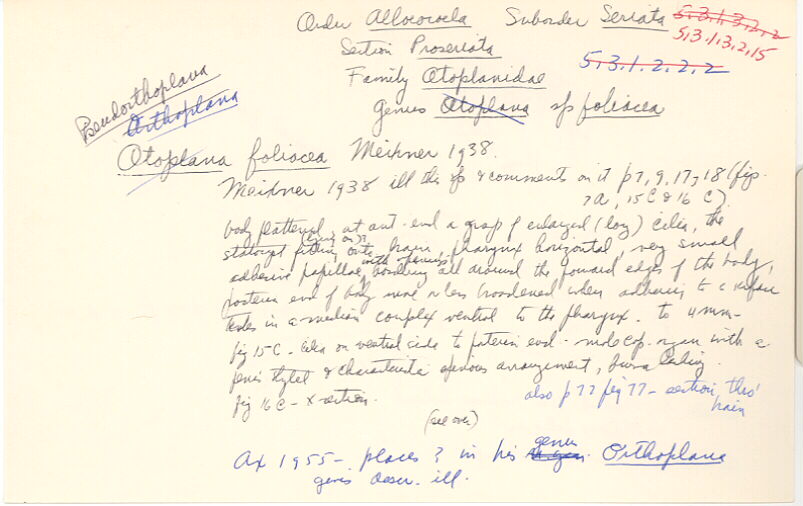 Order Allococoela Suborder Seriata 5.3.1.3.2.2
5.3.1.3.2.15
Section Proseriata
5.3.1.2.2.2
Family Otoplanidae
Genus Otoplana sp foliacea
Pseudorthoplana
Orthoplana
Otoplana foliacea Meixner 1938.
Meixner 1938 ill this sp & comments on it p 7, 9, 17, 18 (figs
7A, 15 C & 16 C).
body flattened, at ant. end a group of enlarged (long) cilia, the
statocyst fitting onto brain, pharynx horizontal, very small
(lying on)?
adhesive papillae, bordering all around the edges of the body,
with spines
posterior end of body more or less broadened when adhering to a surface
testes in a median complex ventral to the pharynx. to 4 mm-
fig 15C - cilia on ventral side to posterior end - male cop. organ with a
penis stylet & characteristic spinous arrangement, bursa lacking.
fig 16 C - X-section.
also p 77 fig 77 - section thro'
brain
(see over)
Ax 1955 - places ? in his genus Orthoplana
gives descr. ill.